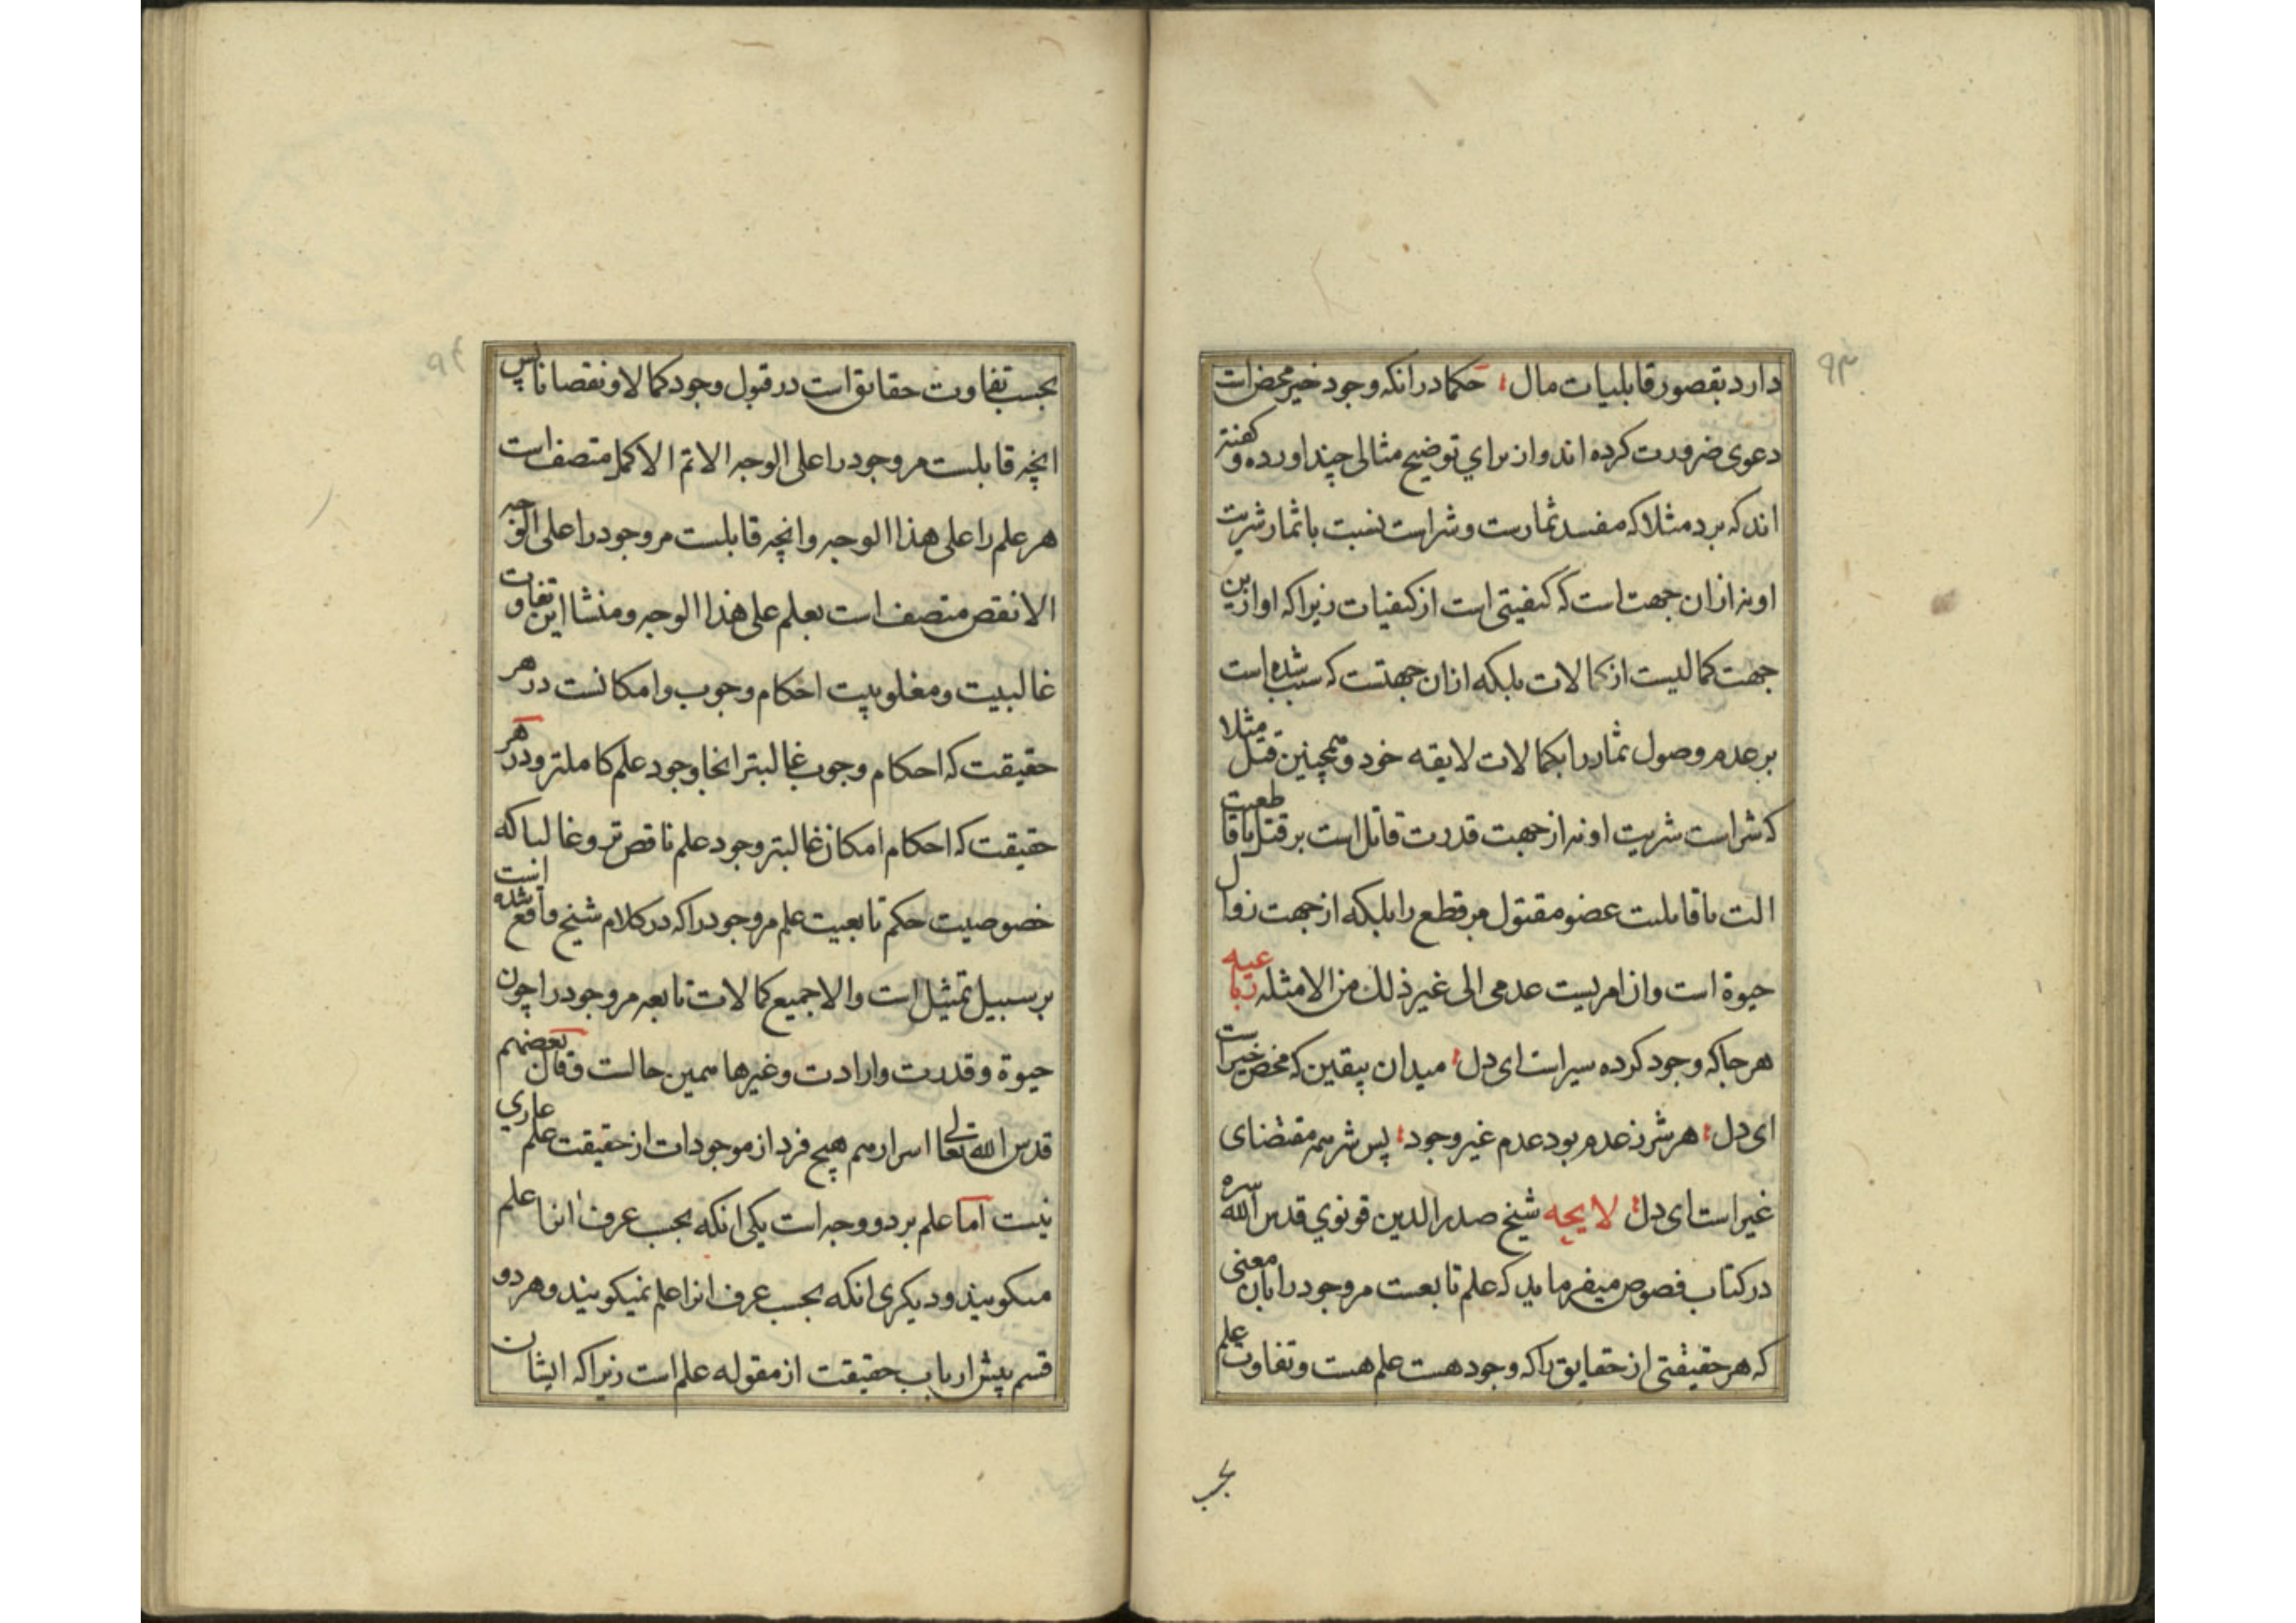 ۹۳
دارد بقصور قابلیات مال؛ حکما در انکه وجود خیر محض است
دعوی ضرورت کرده اند و از برای توضیح مثالی چند اورده و کفته
اند که برد مثلا که مفسد ثمارست و شر است نسبت با ثمار شریت
او نه از ان جهت است که کیفیتی است از کیفیات زیرا که او از این
جهت کمالیست از کمالات بلکه از ان جهتست که سبب شده است
بر عدم وصول ثمار را بکمالات لایقه خود و همچنین قتل مثلا
که شر است شریت او نه از جهت قدرت قاتل است بر قتل یا قاطعیت
الت یا قابلیت عضو مقتول مر قطع را بلکه از جهت زوال
حیوة است و ان امریست عدمی الی غیر ذلک من الامثله رباعیه
هر جا که وجود کرده سیر است ای دل؛ میدان بیقین که محض خیر است
ای دل؛ هر شر ز عدم بود عدم غیر وجود؛ پس شر همه مقتضای
غیر است ای دل؛ لایحه شیخ صدر الدین قونوی قدس الله سره
در کتاب فصوص میفرماید که علم تابعست مر وجود را بان معنی
که هر حقیقتی از حقایق را که وجود هست علم هست و تفاوت علم
بحسب
۹۴
بحسب تفاوت حقایق است در قبول وجود کمالا و نقصانا پس
انچه قابلست مر وجود را علی الوجه الاتم الاکمل متصف است
هر علم را علی هذا الوجه و انچه قابلست مر وجود را علی الوجه
الانقص متصف است بعلم علی هذا الوجه و منشا این تفاوت
غالبیت و مغلوبیت احکام وجوب و امکانست در هر
حقیقت که احکام وجوب غالبتر انجا وجود علم کاملتر و در هر
حقیقت که احکام امکان غالبتر وجود علم ناقص تر و غالبا که
خصوصیت حکم تابعیت علم مر وجود را که در کلام شیخ واقع شده انست
بر سبیل تمثیل است والا جمیع کمالات تابعه مر وجود را چون
حیوة و قدرت و ارادت و غیرها همین حالست و قال بعضهم
قدس الله تعالی اسرارهم هیچ فرد از موجودات از حقیقت علم عاری
نیست اما علم بر دو وجه است یکی انکه بحسب عرف انرا علم
میکویند و دیکری انکه بحسب عرف انرا علم نمیکویند و هر دو
قسم پیش ارباب حقیقت از مقوله علم است زیرا که ایشان